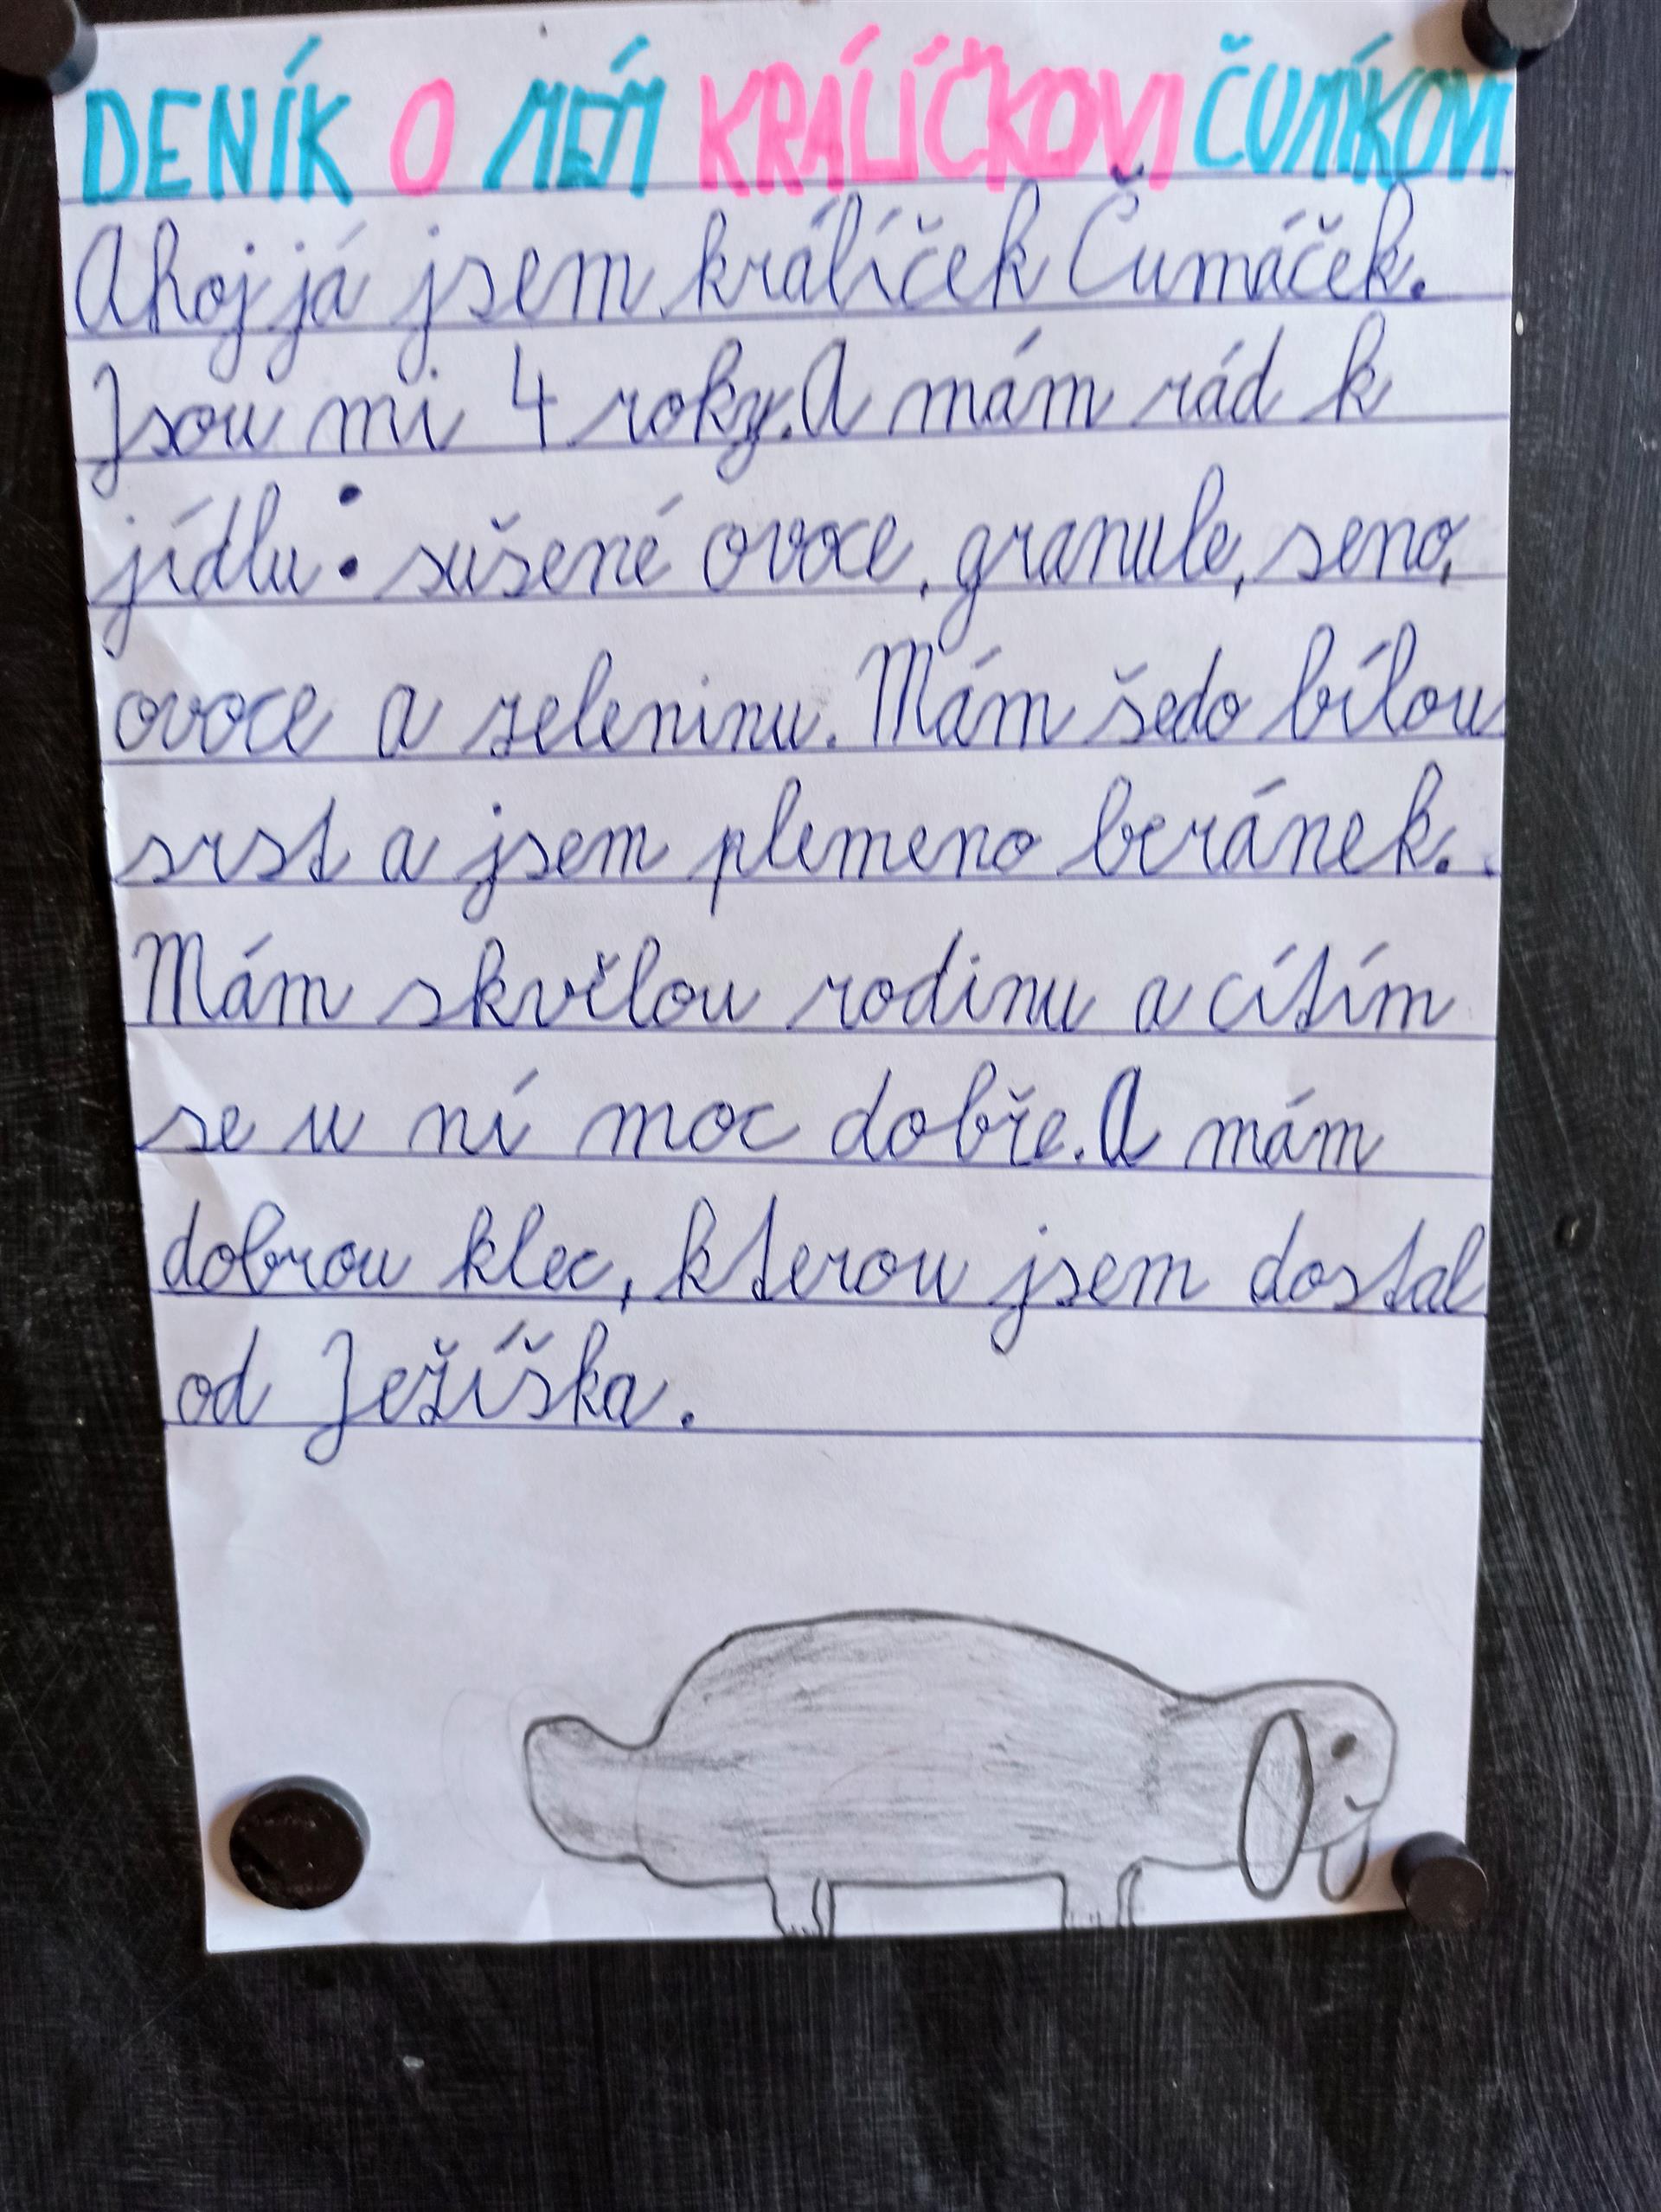 DENÍK O MÉM KRÁLÍČKOVI ČUMÍKOVI
Ahoj já jsem králíček Čumáček.
Jsou mi 4 roky. A mám rád k
jídlu: sušené ovoce, granule, seno,
ovoce a zeleninu. Mám šedo bílou
srst a jsem plemeno beránek.
Mám skvělou rodinu a cítím
se u ní moc dobře. A mám
dobrou klec, kterou jsem dostal
od Ježíška.